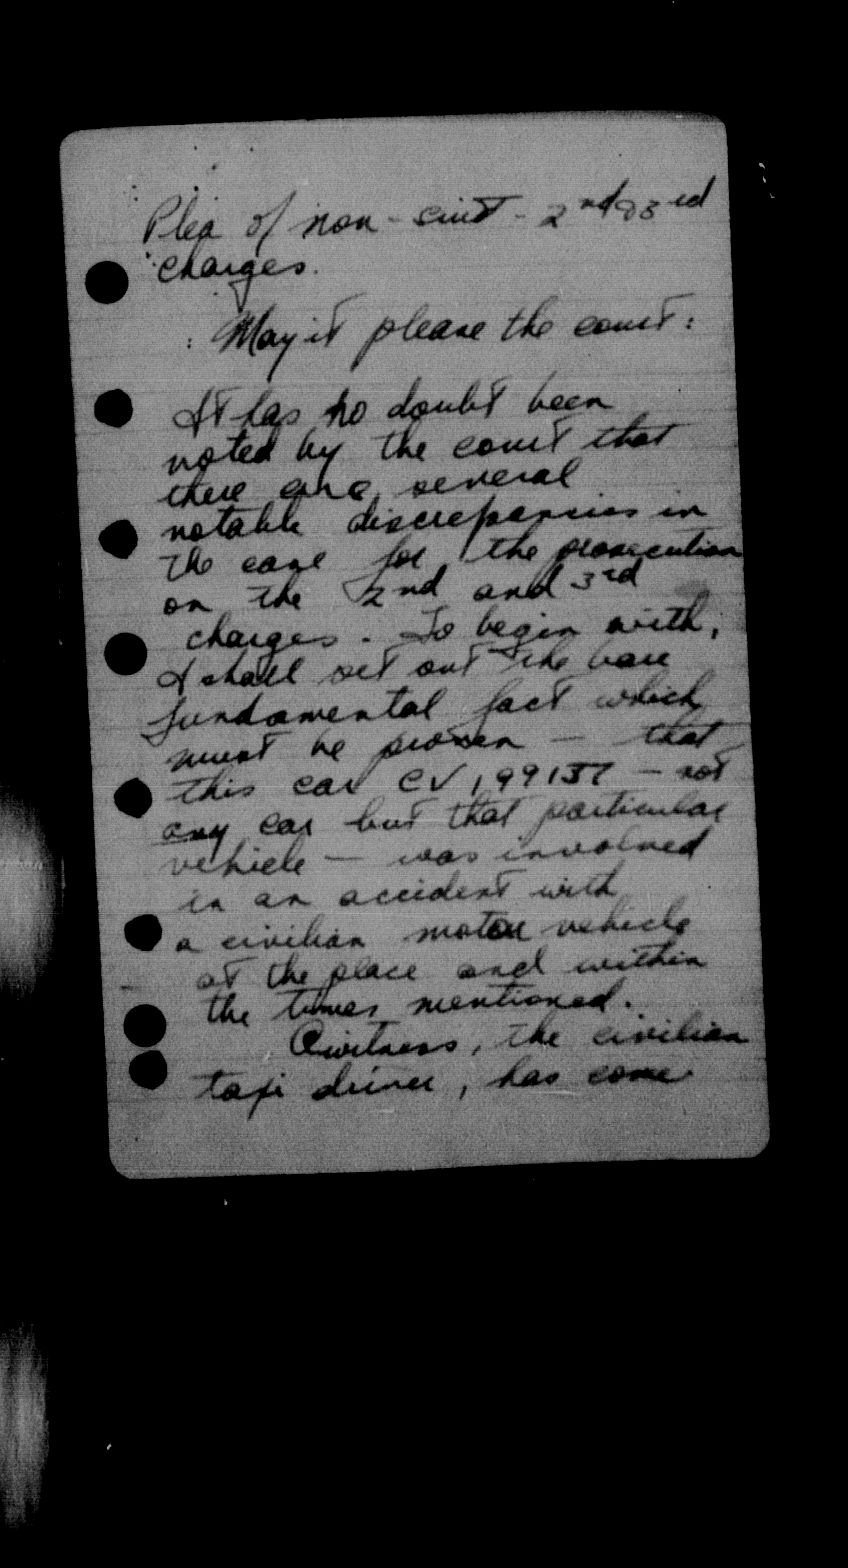 Plea of non-suit - 2nd & 3rd
charges.
May it please the court:
It has no doubt been
noted by the court that
there are several
notable discrepancies in
the case for the prosecution
on the 2nd and 3rd
charges. To begin with,
I shall set out the bare
fundamental fact which
must be proven — that
this car CV 199157 — not
any car but that particular
vehicle — was involved
in an accident with
a civilian motor vehicle
at the place and within
the times mentioned.
A witness, the civilian
taxi driver, has come